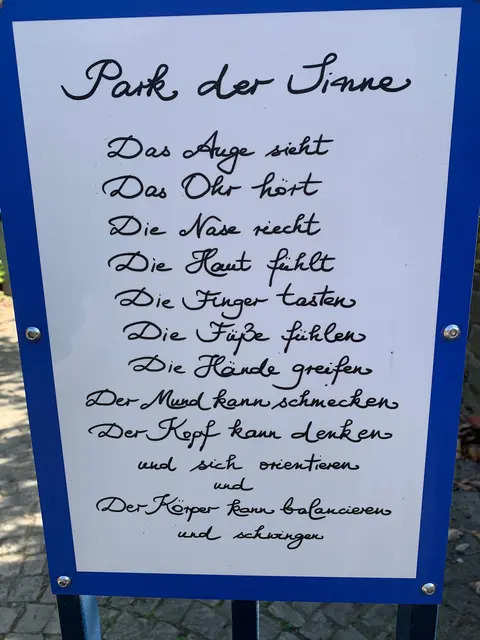 Park der Sinne
Das Auge sieht
Das Ohr hört
Die Nase riecht
Die Haut fühlt
Die Finger tasten
Die Füße fühlen
Die Hände greifen
Der Mund kann schmecken
Der Kopf kann denken
und sich orientieren
und
Der Körper kann balancieren
und schwingen